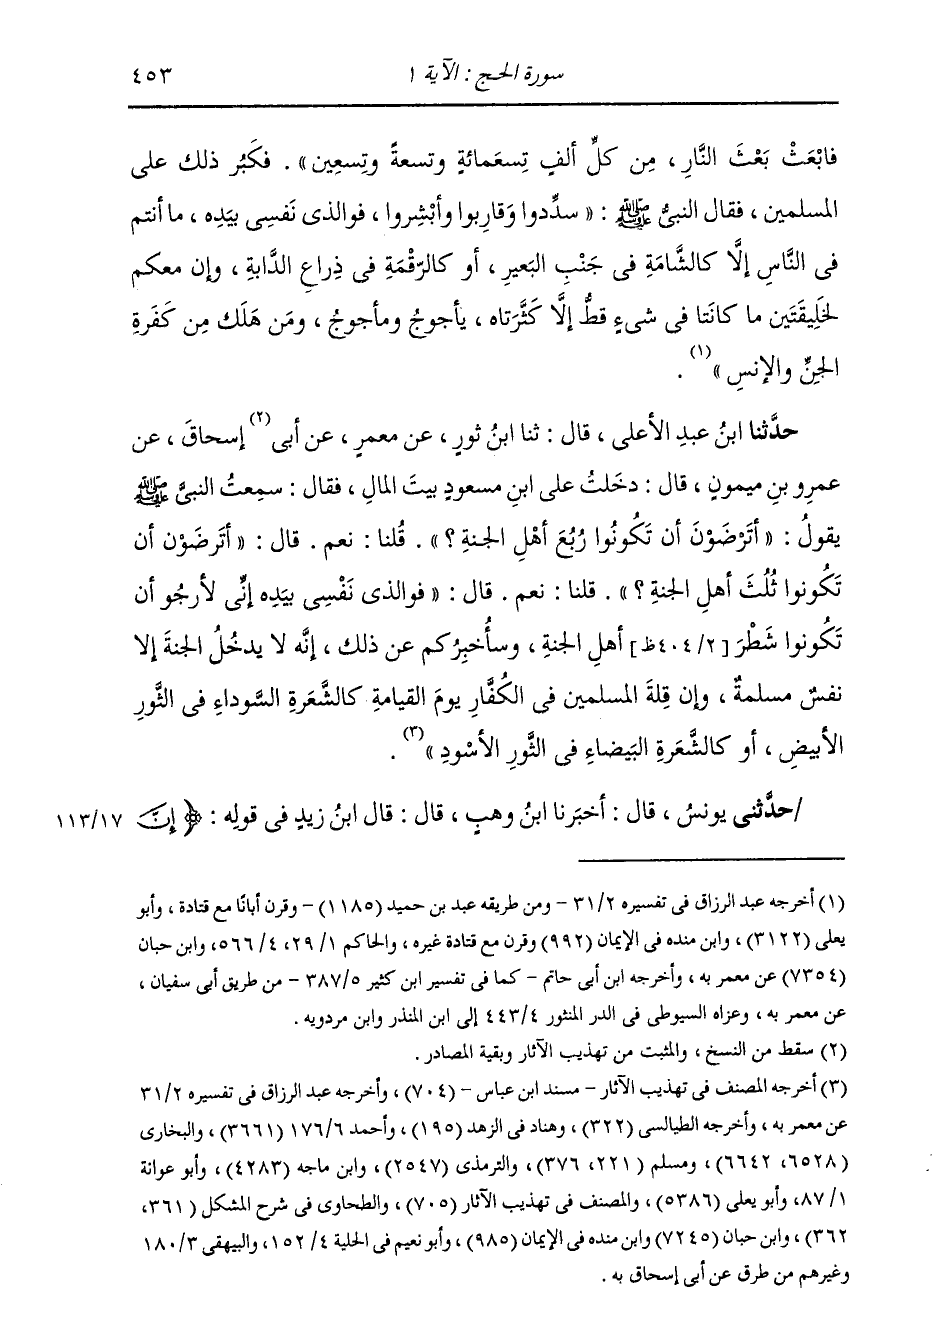 سورة الحج : الآية ١ ٤٥٣
فابْعَثْ بَعْثَ النَّارِ ، مِن كلِّ ألفٍ تِسعَمائةٍ وتسعةً وتِسعِين » . فكَبُر ذلك على
المسلمين ، فقال النبيُّ ﷺ : « سدِّدوا وَقارِبوا وأبْشِروا ، فوالذى نَفسِى بيَدِه ، ما أنتم
فى النَّاسِ إلَّا كالشَّامَةِ فى جَنْبِ البَعيرِ ، أو كالرَّقْمَةِ فى ذِراعِ الدَّابةِ ، وإن معكم
لخَلِيقَتَين ما كانَتا فى شىءٍ قطُّ إلَّا كَثَّرَتاه ، يأجوجُ ومأجوجُ ، ومَن هَلَك مِن كَفَرةِ
الجنِّ والإنسِ »(١) .
حدَّثنا ابنُ عبدِ الأعلى ، قال : ثنا ابنُ ثورٍ ، عن معمرٍ ، عن أبى(٢) إسحاقَ ، عن
عمرِو بنِ ميمونٍ ، قال : دخَلتُ على ابنِ مسعودٍ بيتَ المالِ ، فقال : سمِعتُ النبىَّ ﷺ
يقولُ : « أتَرْضَوْنَ أن تَكُونُوا رُبُعَ أهْلِ الجنةِ ؟ » . قُلنا : نعم . قال : « أتَرضَوْن أن
تَكُونوا ثُلُثَ أهلِ الجنةِ ؟ » . قلنا : نعم . قال : « فوالذى نَفْسِى بيَدِه إنِّى لأرجُو أن
تَكُونوا شَطْرَ [٤٠٤/٢ظ] أهلِ الجنةِ ، وسأُخبِرُكم عن ذلك ، إنَّه لا يدخُلُ الجنةَ إلا
نفسٌ مسلمةٌ ، وإن قِلةَ المسلمين فى الكُفَّارِ يومَ القيامةِ كالشَّعَرةِ السَّوداءِ فى الثَّورِ
الأبيضِ ، أو كالشَّعَرةِ البَيضاءِ فى الثَّورِ الأسْودِ »(٣) .
/حدَّثنى يونسُ ، قال : أخبَرنا ابنُ وهبٍ ، قال : قال ابنُ زيدٍ فى قولِه : ﴿ إِنَّ ١١٣/١٧
(١) أخرجه عبد الرزاق فى تفسيره ٣١/٢ – ومن طريقه عبد بن حميد (١١٨٥) – وقرن أبانًا مع قتادة ، وأبو
يعلى (٣١٢٢) ، وابن منده فى الإيمان (٩٩٢) وقرن مع قتادة غيره ، والحاكم ٢٩/١، ٥٦٦/٤، وابن حبان
(٧٣٥٤) عن معمر به ، وأخرجه ابن أبى حاتم – كما فى تفسير ابن كثير ٣٨٧/٥ – من طريق أبى سفيان ،
عن معمر به ، وعزاه السيوطى فى الدر المنثور ٤٤٣/٤ إلى ابن المنذر وابن مردويه .
(٢) سقط من النسخ ، والمثبت من تهذيب الآثار وبقية المصادر .
(٣) أخرجه المصنف فى تهذيب الآثار – مسند ابن عباس – (٧٠٤) ، وأخرجه عبد الرزاق فى تفسيره ٣١/٢
عن معمر به ، وأخرجه الطيالسى (٣٢٢) ، وهناد فى الزهد (١٩٥) ، وأحمد ١٧٦/٦ (٣٦٦١) ، والبخارى
(٦٥٢٨، ٦٦٤٢) ، ومسلم (٢٢١، ٣٧٦)، والترمذى (٢٥٤٧) ، وابن ماجه (٤٢٨٣) ، وأبو عوانة
٨٧/١، وأبو يعلى (٥٣٨٦) ، والمصنف فى تهذيب الآثار (٧٠٥) ، والطحاوى فى شرح المشكل (٣٦١،
٣٦٢) ، وابن حبان (٧٢٤٥) وابن منده فى الإيمان (٩٨٥) ، وأبو نعيم فى الحلية ١٥٢/٤، والبيهقى ١٨٠/٣
وغيرهم من طرق عن أبى إسحاق به .